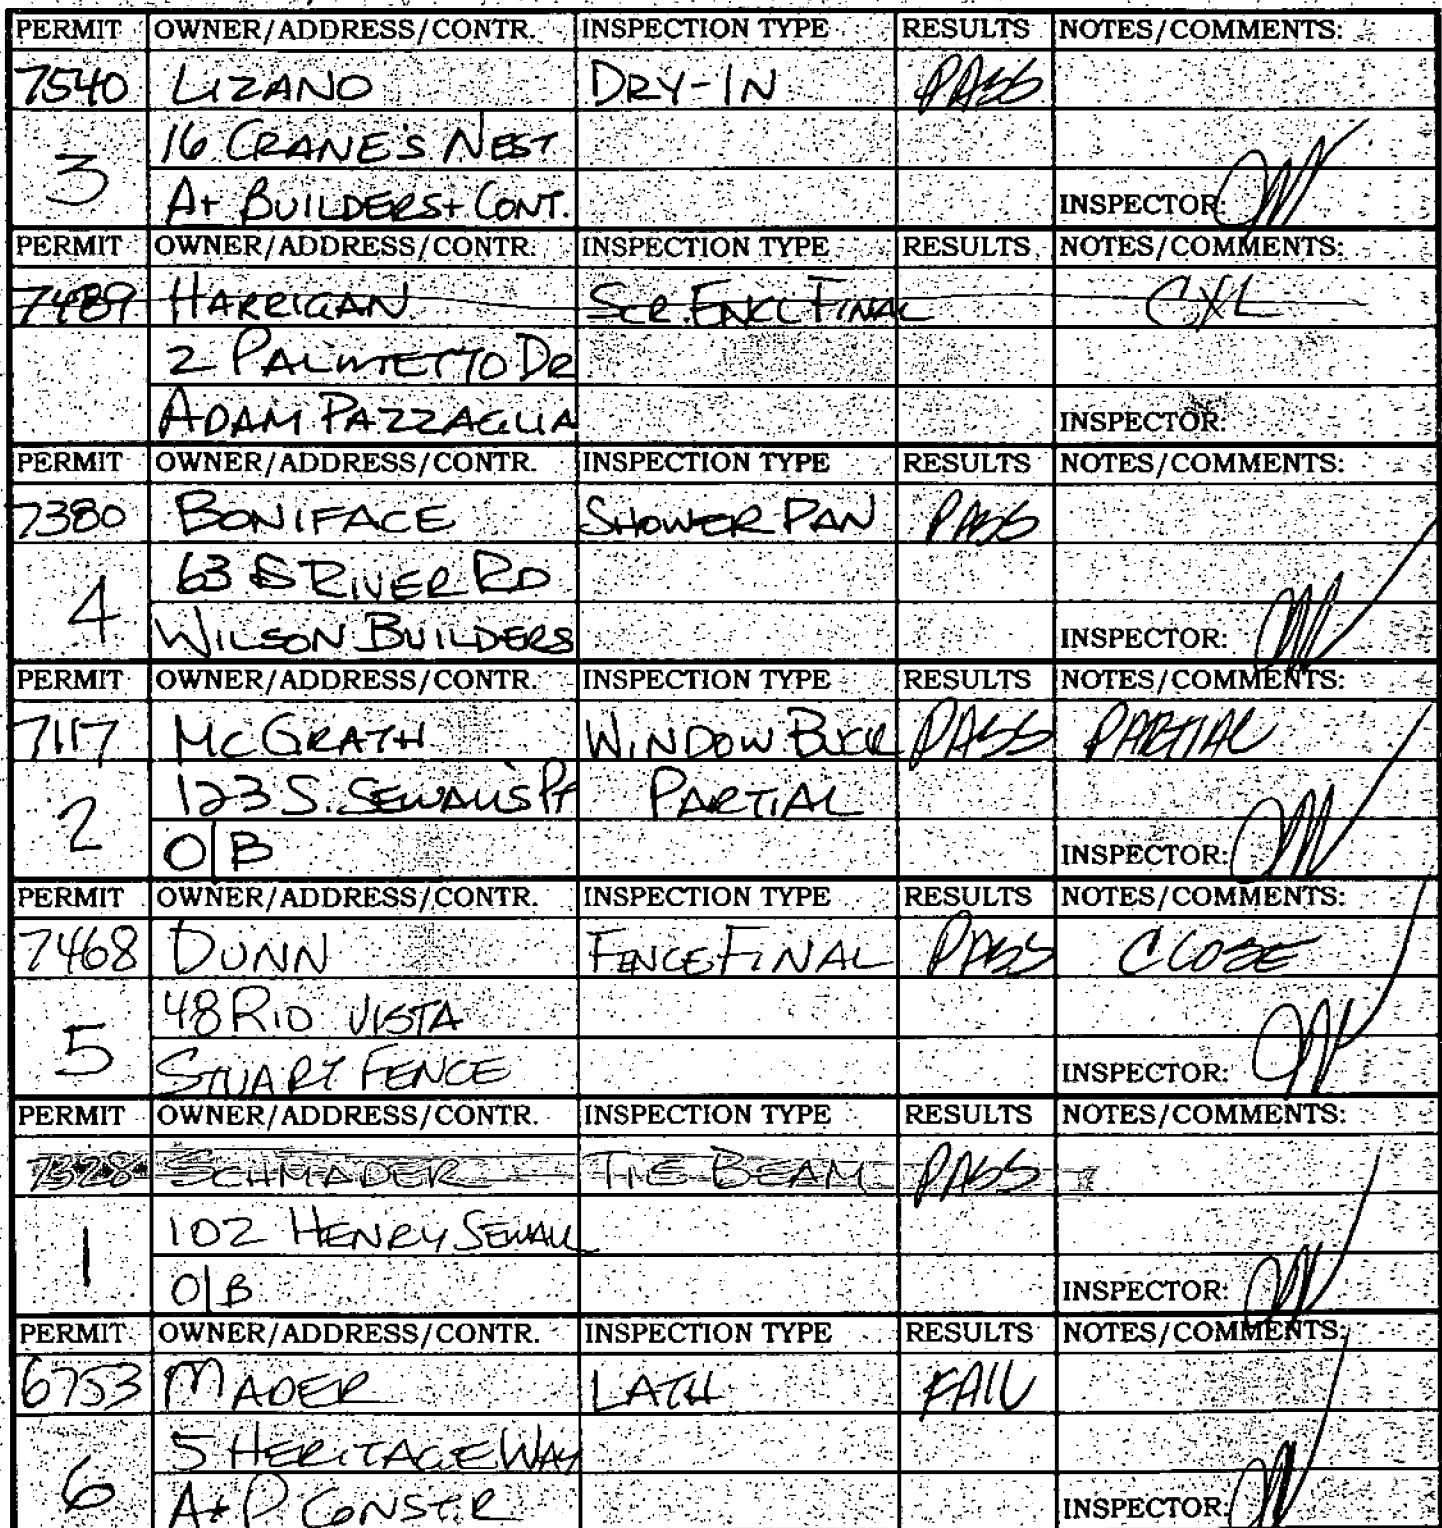 PERMIT OWNER/ADDRESS/CONTR. INSPECTION TYPE RESULTS NOTES/COMMENTS:
7540 LIZANO DRY-IN PASS
3 16 CRANE'S NEST
A+ BUILDERS+ CONT. INSPECTOR:
PERMIT OWNER/ADDRESS/CONTR. INSPECTION TYPE RESULTS NOTES/COMMENTS:
7489 HARRIGAN SCR. ENCL FINAL CXL
2 PALMETTO DR
ADAM PAZZAGLIA INSPECTOR:
PERMIT OWNER/ADDRESS/CONTR. INSPECTION TYPE RESULTS NOTES/COMMENTS:
7380 BONIFACE SHOWER PAN PASS
4 63 S RIVER RD
WILSON BUILDERS INSPECTOR:
PERMIT OWNER/ADDRESS/CONTR. INSPECTION TYPE RESULTS NOTES/COMMENTS:
7117 MCGRATH WINDOW BUCK PASS PARTIAL
2 123 S. SEWALL'S PT PARTIAL
O/B INSPECTOR:
PERMIT OWNER/ADDRESS/CONTR. INSPECTION TYPE RESULTS NOTES/COMMENTS:
7468 DUNN FENCE FINAL PASS CLOSE
5 48 RIO VISTA
STUART FENCE INSPECTOR:
PERMIT OWNER/ADDRESS/CONTR. INSPECTION TYPE RESULTS NOTES/COMMENTS:
7328 SCHMADER TIE BEAM PASS
1 102 HENRY SEWALL
O/B INSPECTOR:
PERMIT OWNER/ADDRESS/CONTR. INSPECTION TYPE RESULTS NOTES/COMMENTS:
6753 MADER LATH FAIL
6 5 HERITAGE WAY
A+P CONSTR INSPECTOR: